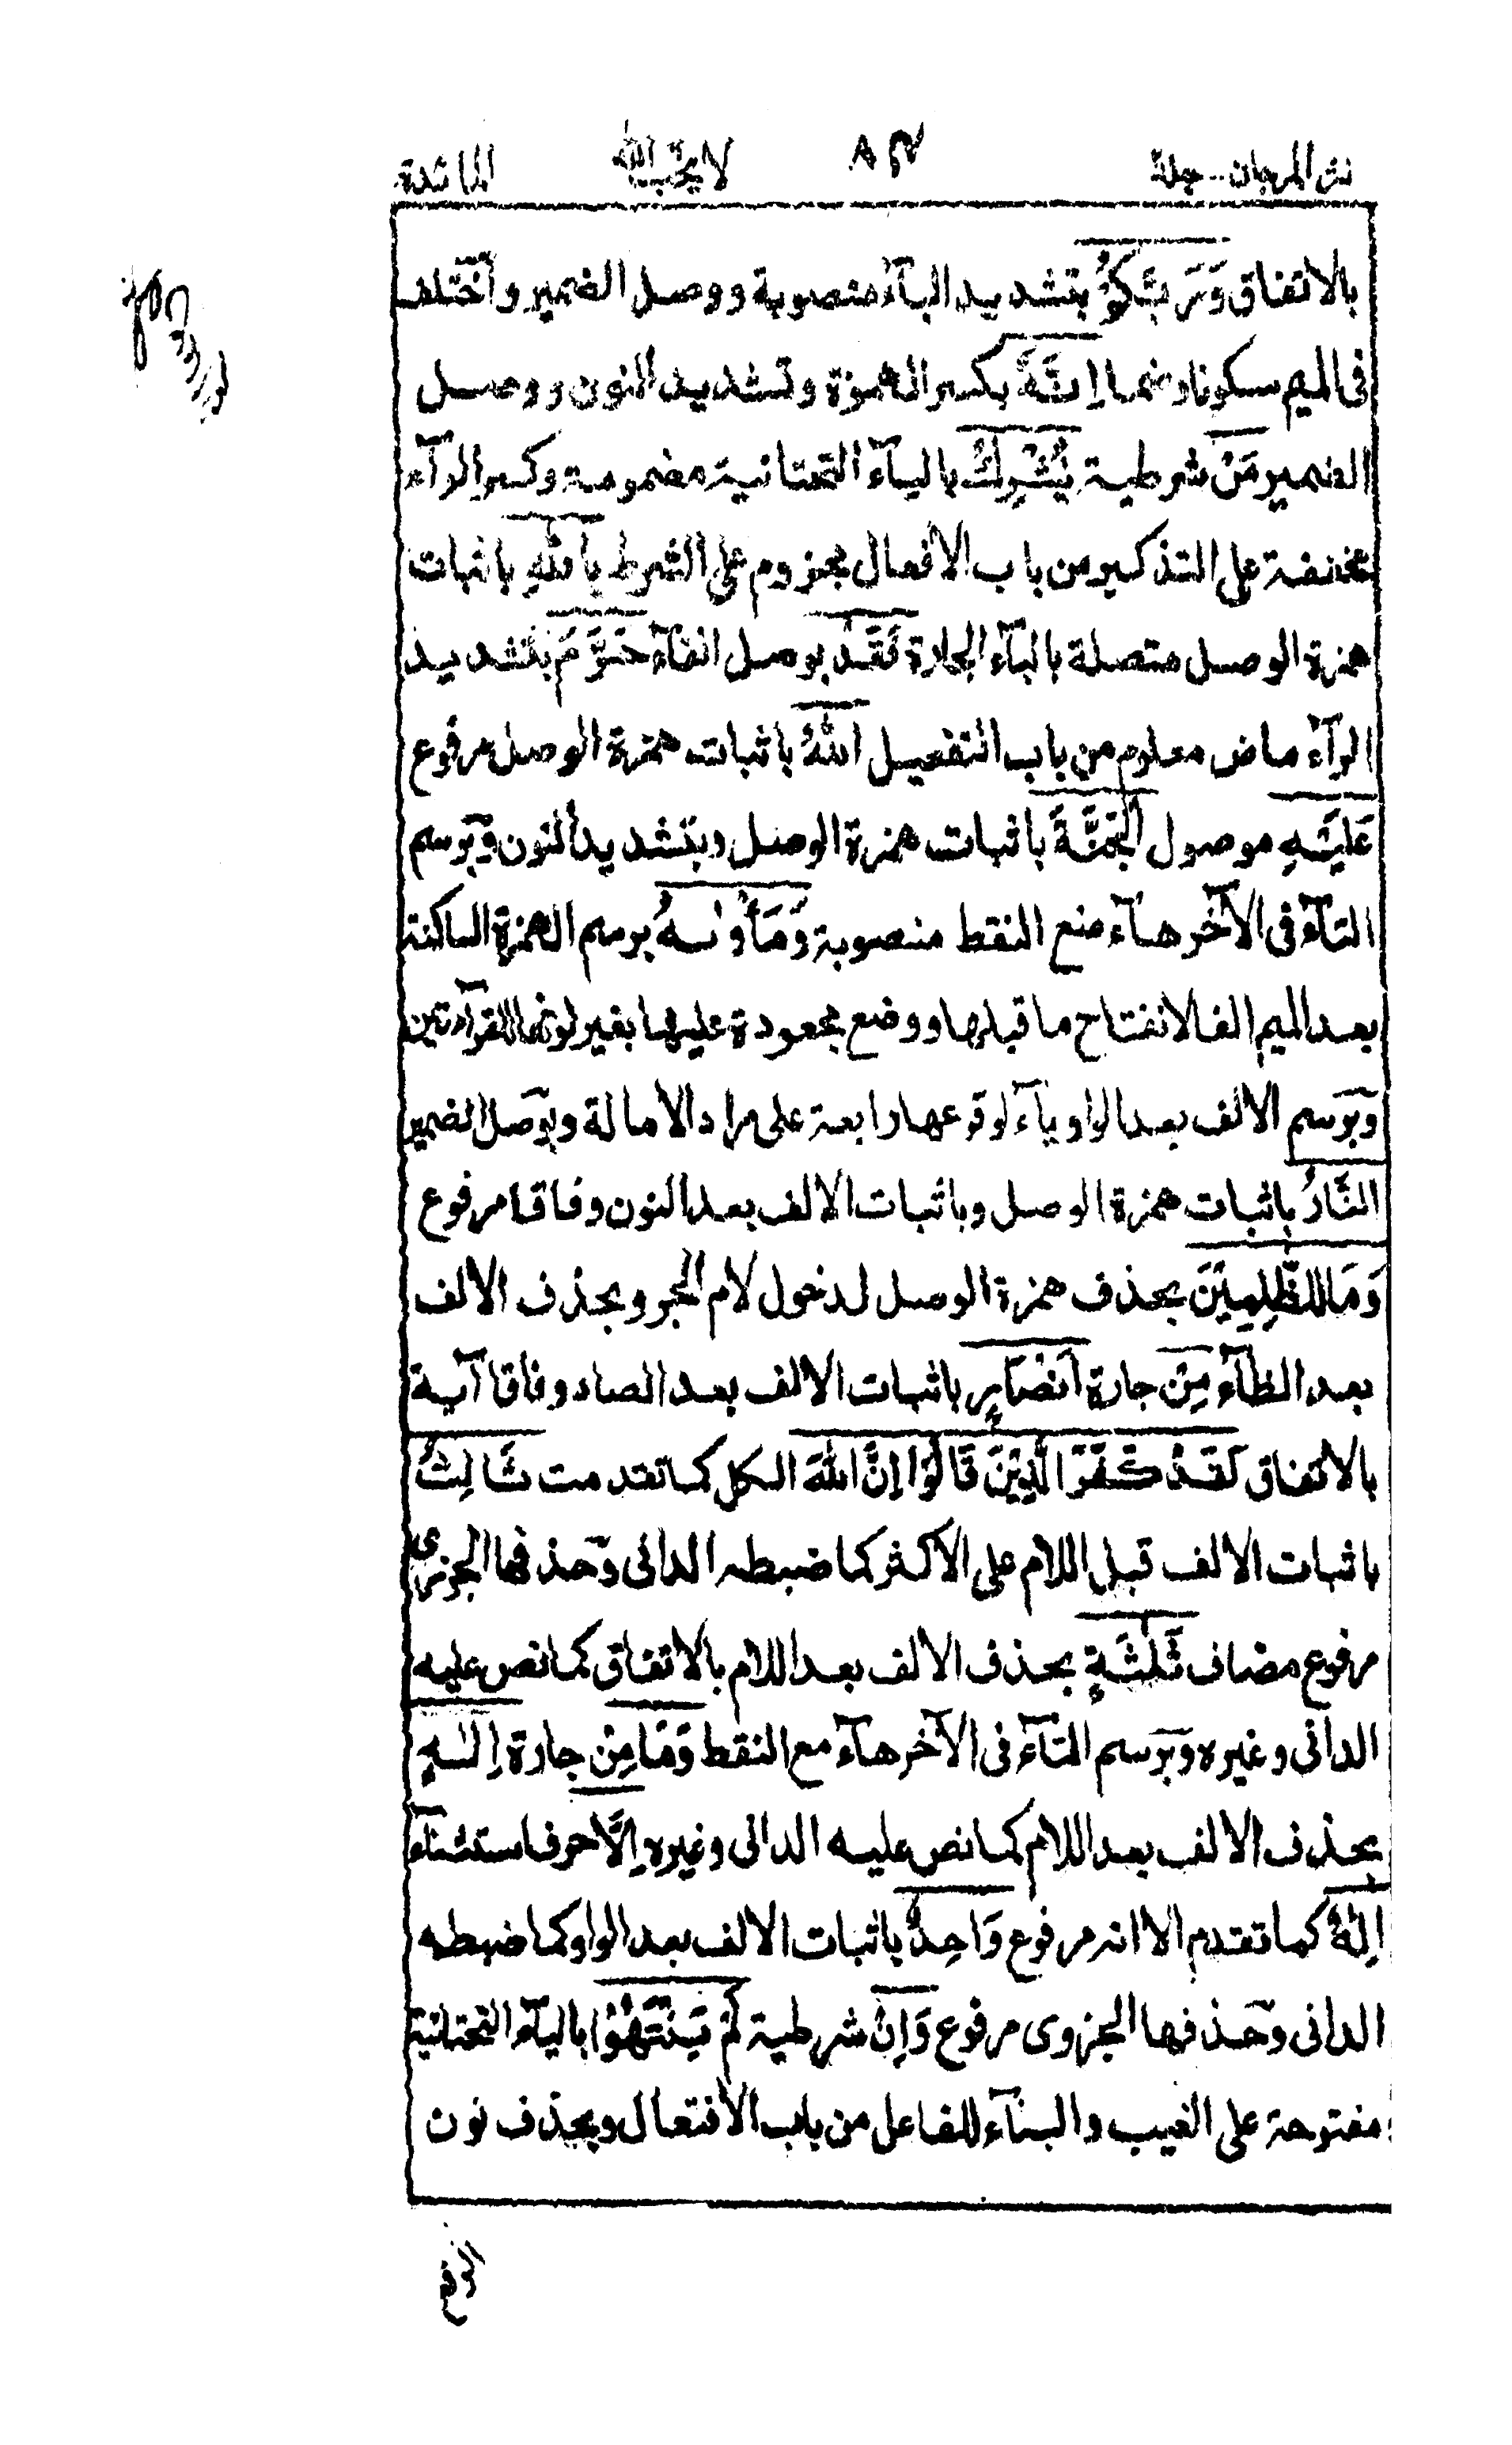 نثر المرجان - جلد٢ ٨٢ لا يحب الله المائدة
بالاتفاق وَرَبَّكُمْ بتشديد البآء منصوبة ووصل الضمير وآختلف
فى الميم سكونا وضما اِنَّهٗ بكسر الهمزة وتشديد النون ووصل
الضمير مَنْ شرطية يُّشْرِكْ باليآء التحتانية مضمومة وكسر الرآء
مخففة على التذكير من باب الافعال مجزوم على الشرط بِاللّٰهِ باثبات
همزة الوصل متصلة بالبآء الجارة فَقَدْ بوصل الفآء حَرَّمَ بتشديد
الرآء ماض معلوم من باب التفعيل اللّٰهُ باثبات همزة الوصل مرفوع
عَلَيْهِ موصول الْجَنَّةَ باثبات همزة الوصل وبتشديد النون وبرسم
التآء فى الآخر هآء منع النقط منصوبة وَمَأْوٰىهُ برسم الهمزة الساكنة
بعد الميم الفا لانفتاح ما قبلها ووضع مجعودة عليها بغير لونها للقرآءتين
وبرسم الالف بعد الواو يآء لوقوعها رابعة على مراد الامالة وبوصل الضمير
النَّارُ باثبات همزة الوصل وباثبات الالف بعد النون وفاقا مرفوع
وَمَا لِلظّٰلِمِيْنَ بحذف همزة الوصل لدخول لام الجر وبحذف الالف
بعد الظآء مِنْ جارة اَنْصَارٍ باثبات الالف بعد الصاد وفاقا آية
بالاتفاق لَقَدْ كَفَرَ الَّذِيْنَ قَالُوْا اِنَّ اللّٰهَ الكل كما تقدمت ثَالِثُ
باثبات الالف قبل اللام على الاكثر كما ضبطه الدانى وحذفها الجزرى
مرفوع مضاف ثَلٰثَةٍ بحذف الالف بعد اللام بالاتفاق كما نص عليه
الدانى وغيره وبرسم التآء فى الآخر هآء مع النقط وَمَا مِنْ جارة اِلٰهٍ
بحذف الالف بعد اللام كما نص عليه الدانى وغيره اِلَّا حرف استثنآء
اِلٰهٌ كما تقدم الا انه مرفوع وَاحِدٌ باثبات الالف بعد الواو كما ضبطه
الدانى وحذفها الجزرى مرفوع وَاِنْ شرطية لَمْ يَنْتَهُوْا باليآء التحتانية
مفتوحة على الغيب والبنآء للفاعل من باب الافتعال وبحذف نون